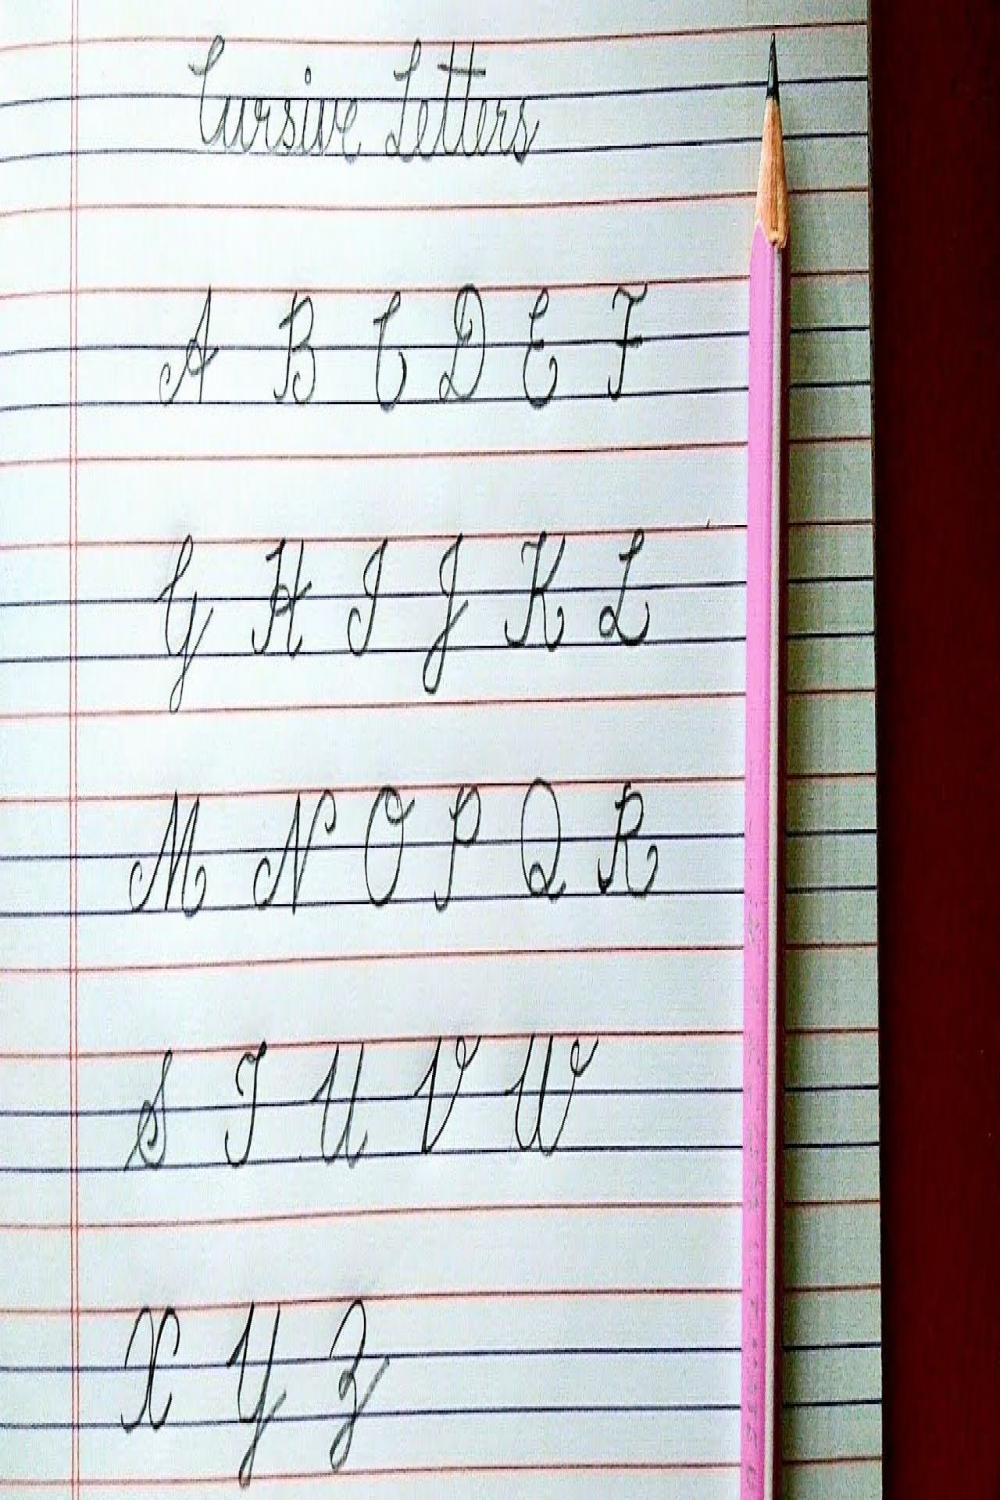 Cursive Letters
A B C D E F
G H I J K L
M N O P Q R
S T U V W
X Y Z